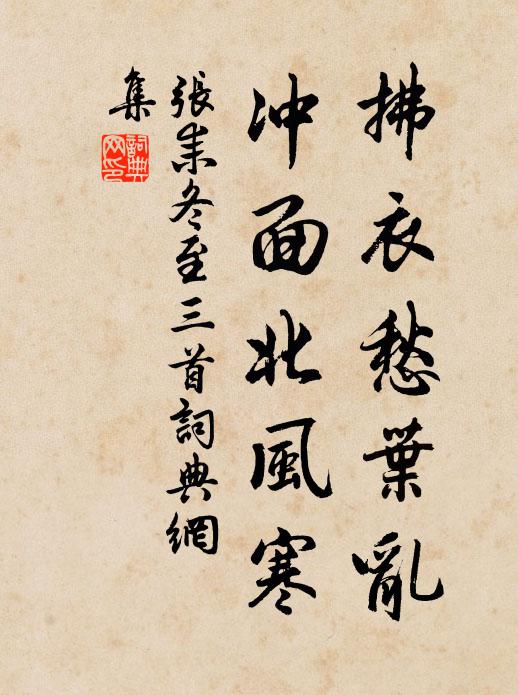 拂衣愁葉亂
冲面北風寒
張耒冬至三首詞典網
集
詞典
网印